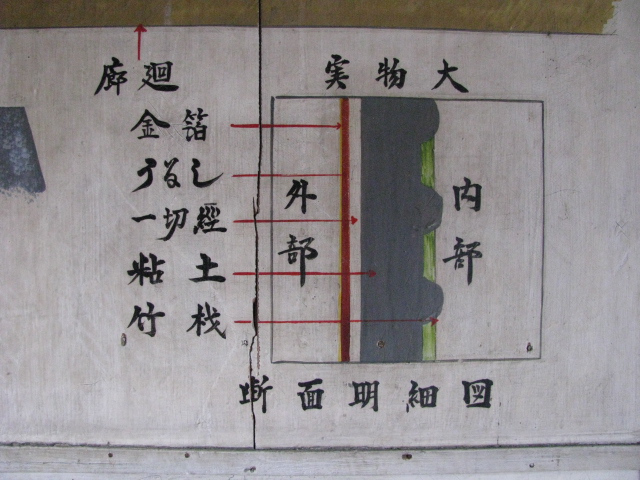 廊廻
実物大
金箔
うるし
一切經
粘土
竹桟
外部
内部
断面明細図